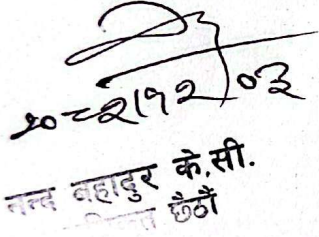 २०८२।१२।०३
नन्द बहादुर के.सी.
छैठौं